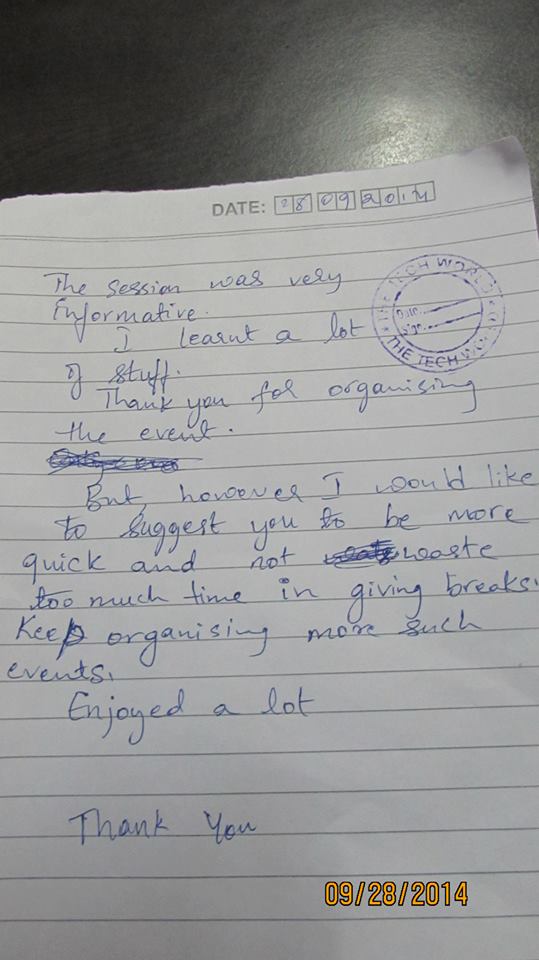 DATE: 28 09 2014
The session was very
informative.
I learnt a lot
of stuff.
Thank you for organising
the event.
But, however I would like
to suggest you to be more
quick and not waste
too much time in giving breaks.
Keep organising more such
events.
Enjoyed a lot
Thank You
THE TECH WORLD
Date
Sign
THE TECH
09/28/2014